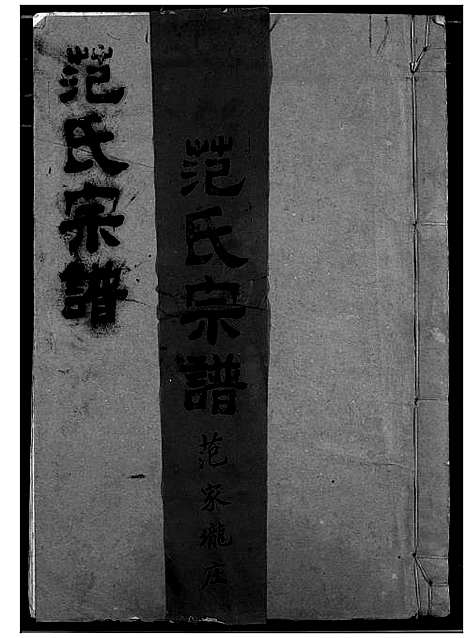 范氏宗譜
范氏宗譜
范家壠庄